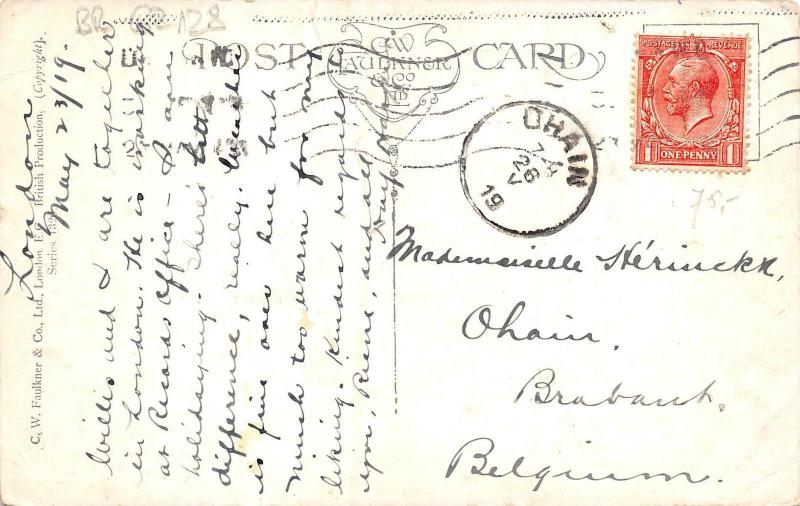 BR BR 128
POST CARD
C.W
FAULKNER
& Co
LTD
London
May 23/19.
Willis and I are together
in London. He is working
at Records Office - I am
holidaying. There's little
difference, really. Weather
is fine over here but
much too warm for my
liking. Kindest regards
you, and all
C. W. Faulkner & Co., Ltd., London, E.C. British Production, (Copyright).
Series
POSTAGE REVENUE
ONE PENNY
1 1
OHAIN
26
V
19
75,-
Mademoiselle Hérinckx,
Ohain,
Brabant.
Belgium.